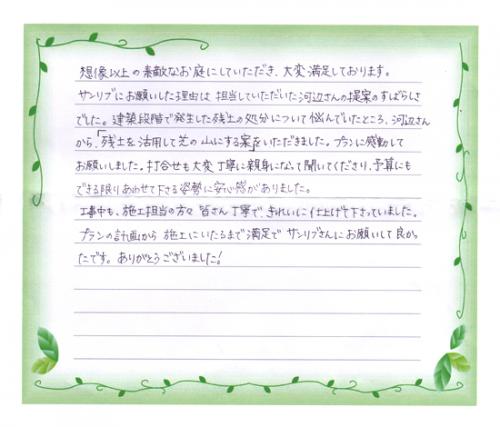 想像以上の素敵なお庭にしていただき、大変満足しております。
サンリブにお願いした理由は、担当していただいた河辺さんの提案のすばらしさ
でした。建築段階で発生した残土の処分について悩んでいたところ、河辺さん
から、「残土を活用して芝の山にする案」をいただきました。プランに感動して
お願いしました。打合せも大変丁寧に親身になって聞いてくださり、予算にも
できる限りあわせて下さる姿勢に安心感がありました。
工事中も、施工担当の方々皆さん丁寧で、きれいに仕上げて下さっていました。
プランの計画から施工にいたるまで満足で サンリブさんにお願いして良かっ
たです。ありがとうございました!